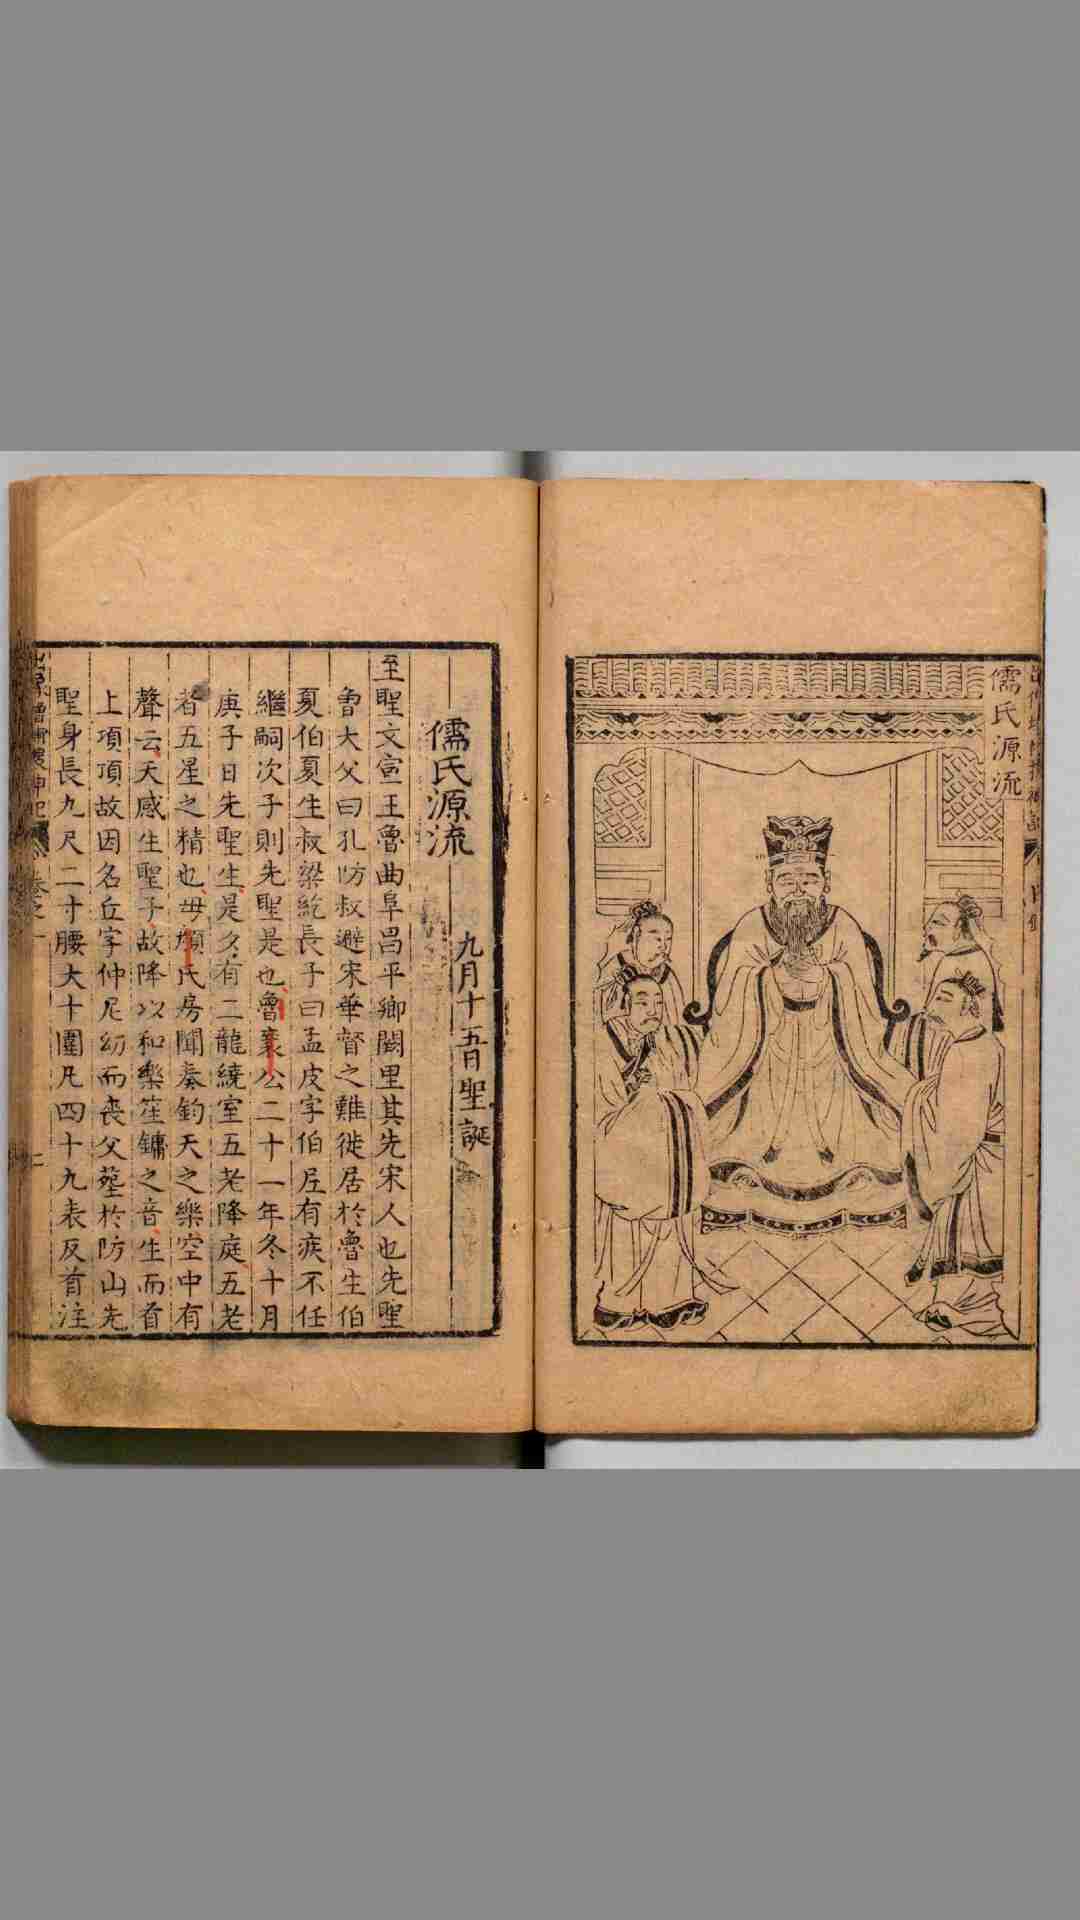 儒氏源流
儒氏源流
九月十五日聖誕
至聖文宣王魯曲阜昌平鄉闕里其先宋人也先聖
魯大父曰孔防叔避宋華督之難徙居於魯生伯
夏伯夏生叔梁紇長子曰孟皮字伯尼有疾不任
繼嗣次子則先聖是也魯襄公二十一年冬十月
庚子日先聖生是夕有二龍繞室五老降庭五老
者五星之精也母顏氏房聞奏鈞天之樂空中有
聲云天感生聖子故降以和樂笙鏞之音生而首
上項頂故因名丘字仲尼幼而喪父塟於防山先
聖身長九尺二寸腰大十圍凡四十九表反首注